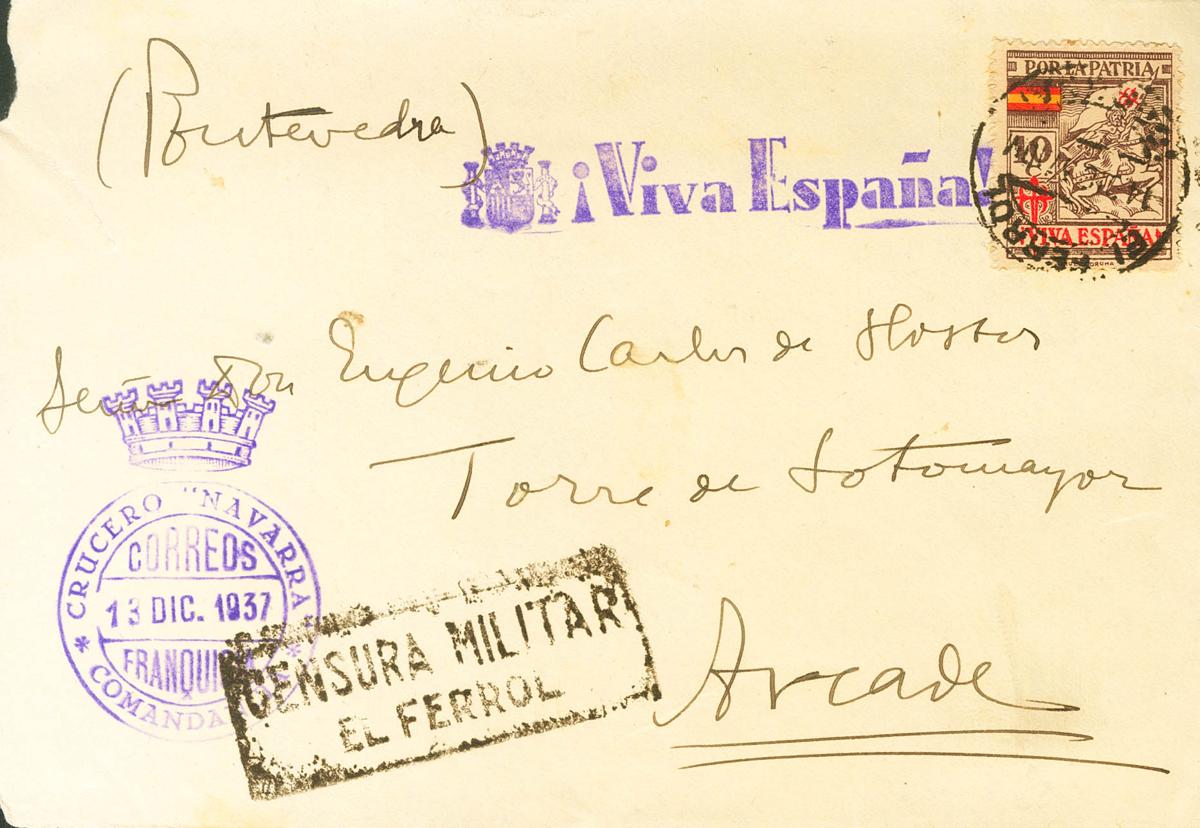 (Pontevedra)
¡Viva España!
POR LA PATRIA
40
VIVA ESPAÑA
EL FERROL
Señor Don Eugenio Carlos de Hostos
Torre de Sotomayor
Arcade
CRUCERO "NAVARRA"
CORREOS
13 DIC. 1937
FRANQUICIA
CENSURA MILITAR
EL FERROL